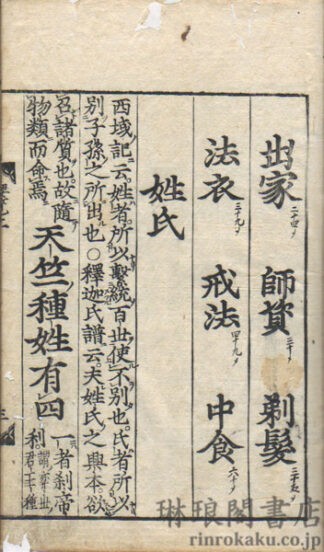 出家 師資 剃髮
法衣 戒法 中食
姓氏
西域記云姓者所以繫統百世使不別也氏者所以
別子孫之所出也○釋迦氏譜云夫姓氏之興本欲
召諸質也故隨
物類而命焉
天竺種姓有四
一者刹帝
利謂奕世
君王種
琳琅閣書店
rinrokaku.co.jp